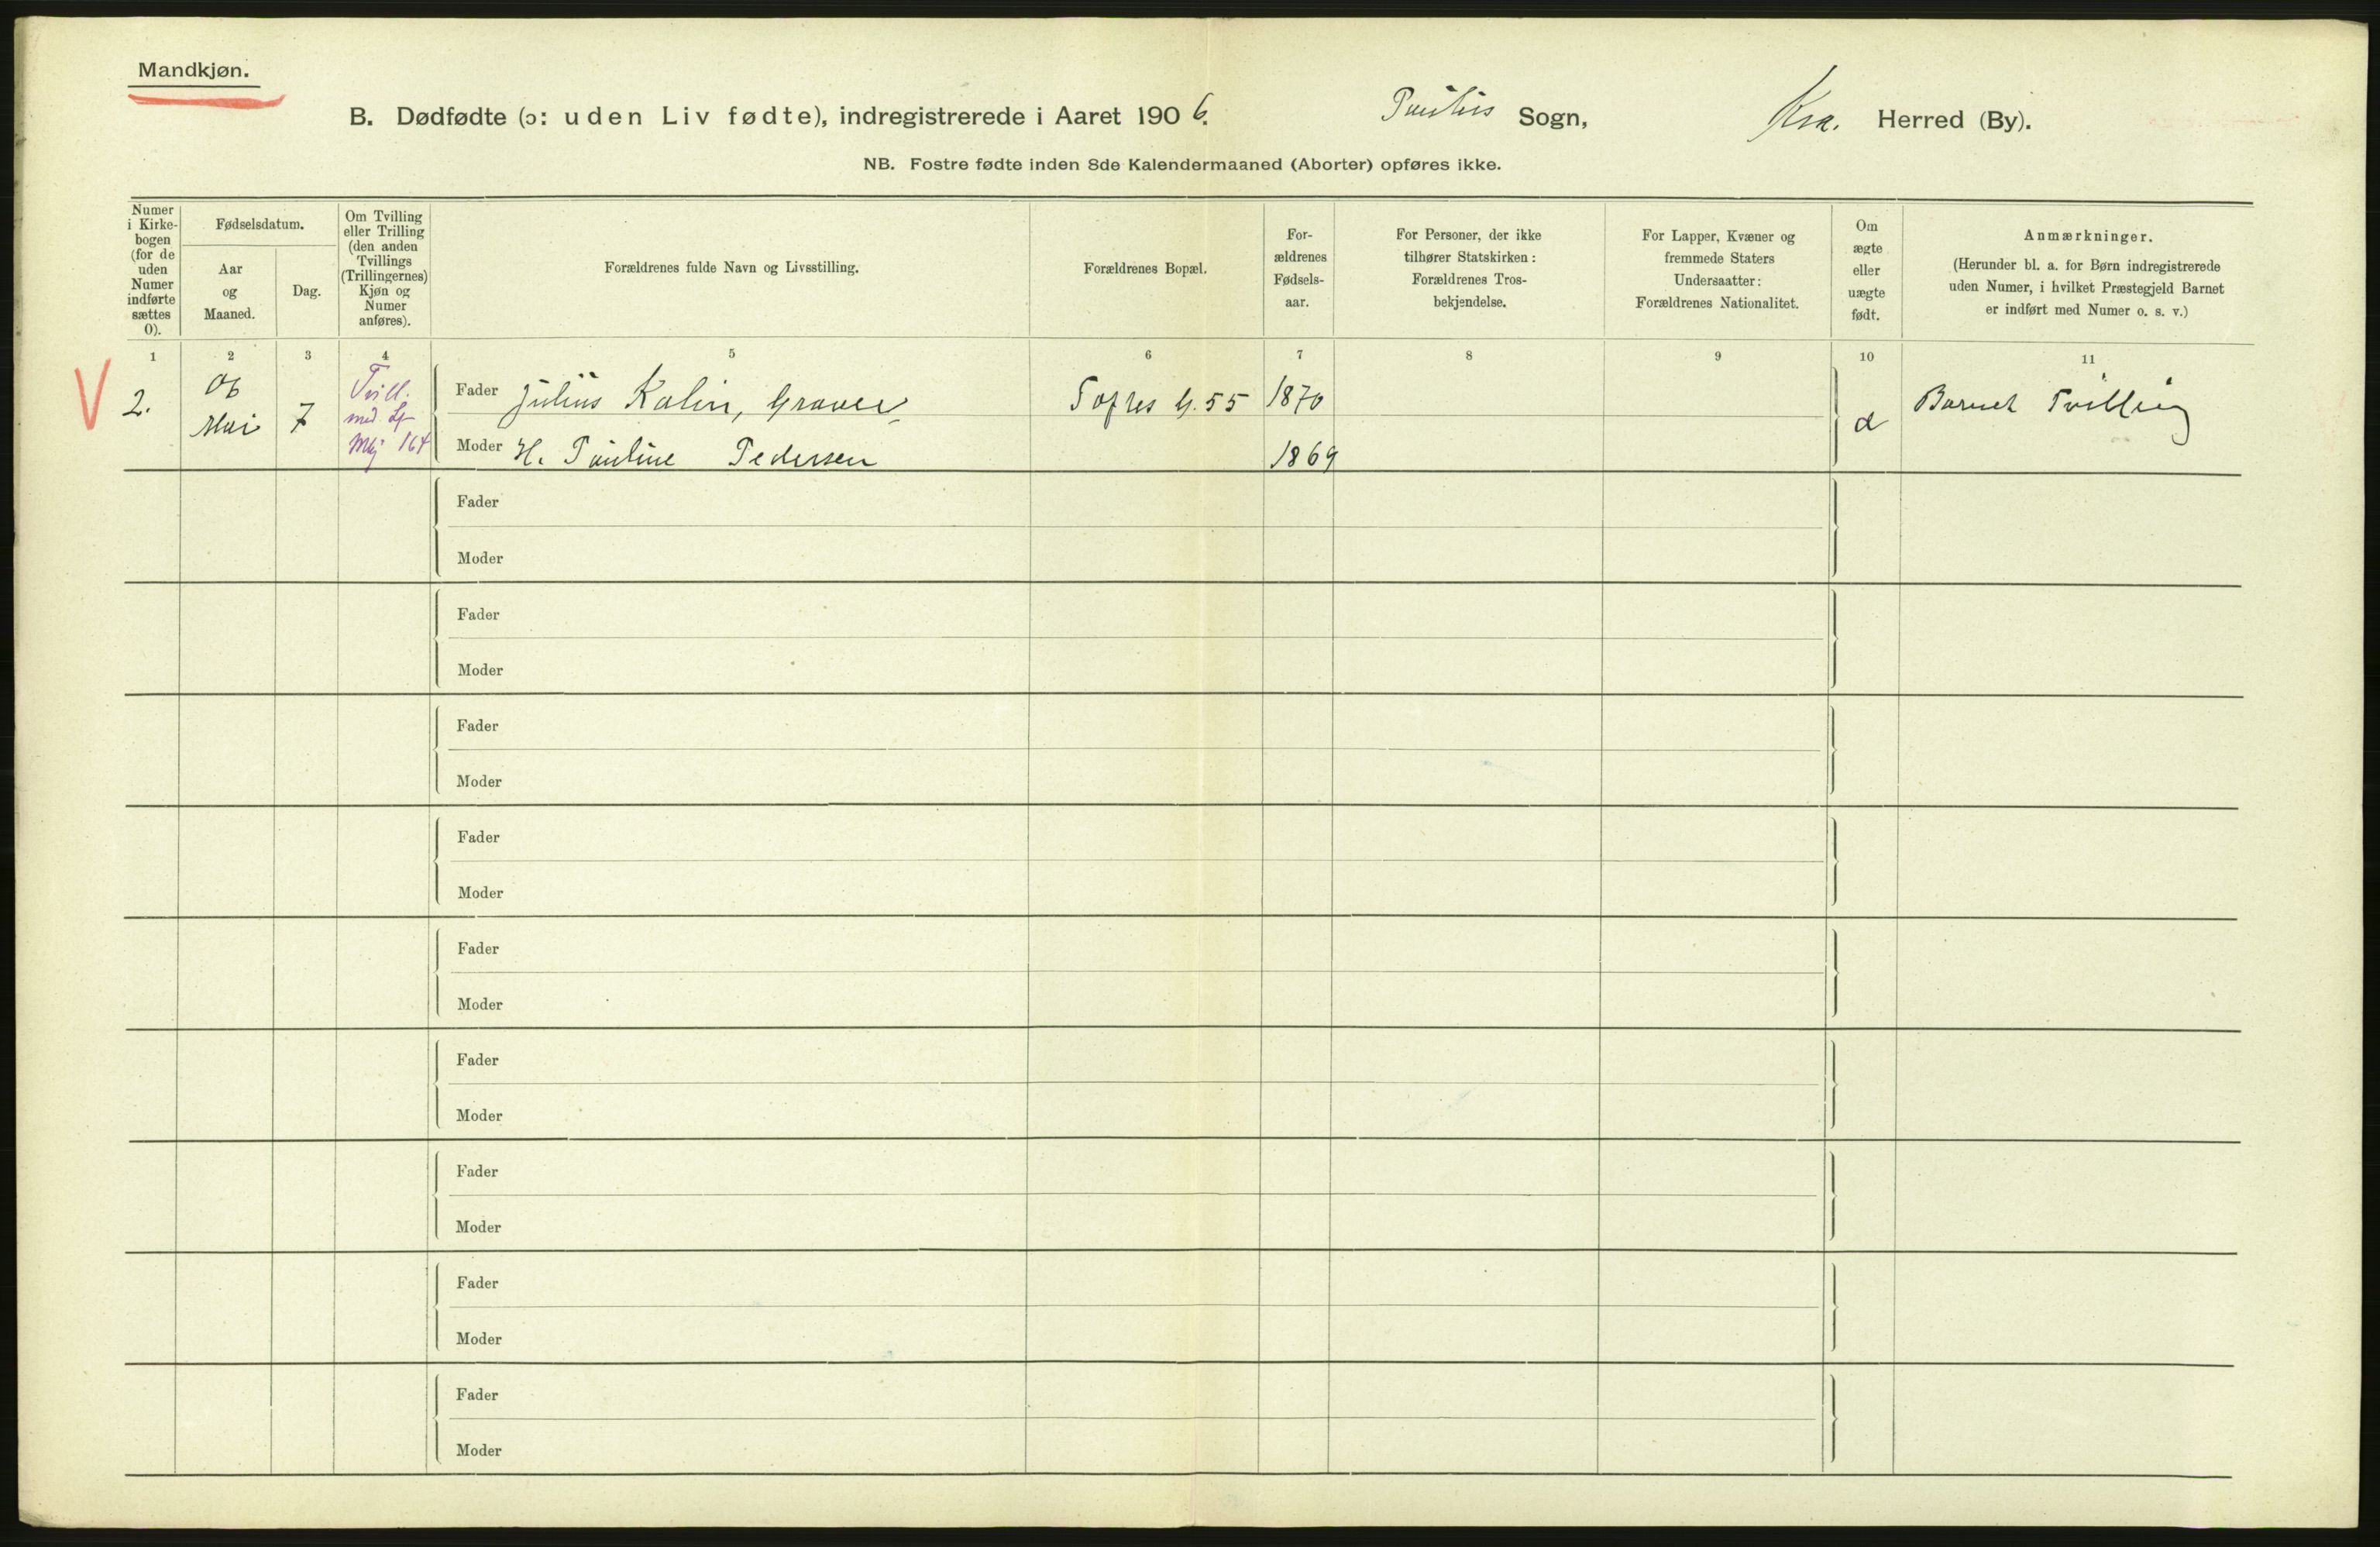 Mandkjøn.
B. Dødfødte (ɔ: uden Liv fødte), indregistrerede i Aaret 1906. Paulus Sogn, Kra. Herred (By).
NB. Fostre fødte inden 8de Kalendermaaned (Aborter) opføres ikke.
Numer
i Kirke-
bogen
(for de
uden
Numer
indførte
sættes
0).
Fødselsdatum.
Aar
og
Maaned.
Dag.
Om Tvilling
eller Trilling
(den anden
Tvillings
(Trillingernes)
Kjøn og
Numer
anføres).
Forældrenes fulde Navn og Livsstilling.
Forældrenes Bopæl.
For-
ældrenes
Fødsels-
aar.
For Personer, der ikke
tilhører Statskirken:
Forældrenes Tros-
bekjendelse.
For Lapper, Kvæner og
fremmede Staters
Undersaatter:
Forældrenes Nationalitet.
Om
ægte
eller
uægte
født.
Anmærkninger.
(Herunder bl. a. for Børn indregistrerede
uden Numer, i hvilket Præstegjeld Barnet
er indført med Numer o. s. v.)
1 2 3 4 5 6 7 8 9 10 11
V 2.
06
Mai
7
Tvill.
med
Mkj 164
Fader Julius Kalin, Graver
Moder H. Pauline Pedersen
Sofies G. 55
1870
1869
Barnet Tvilling
Fader
Moder
Fader
Moder
Fader
Moder
Fader
Moder
Fader
Moder
Fader
Moder
Fader
Moder
Fader
Moder
Fader
Moder